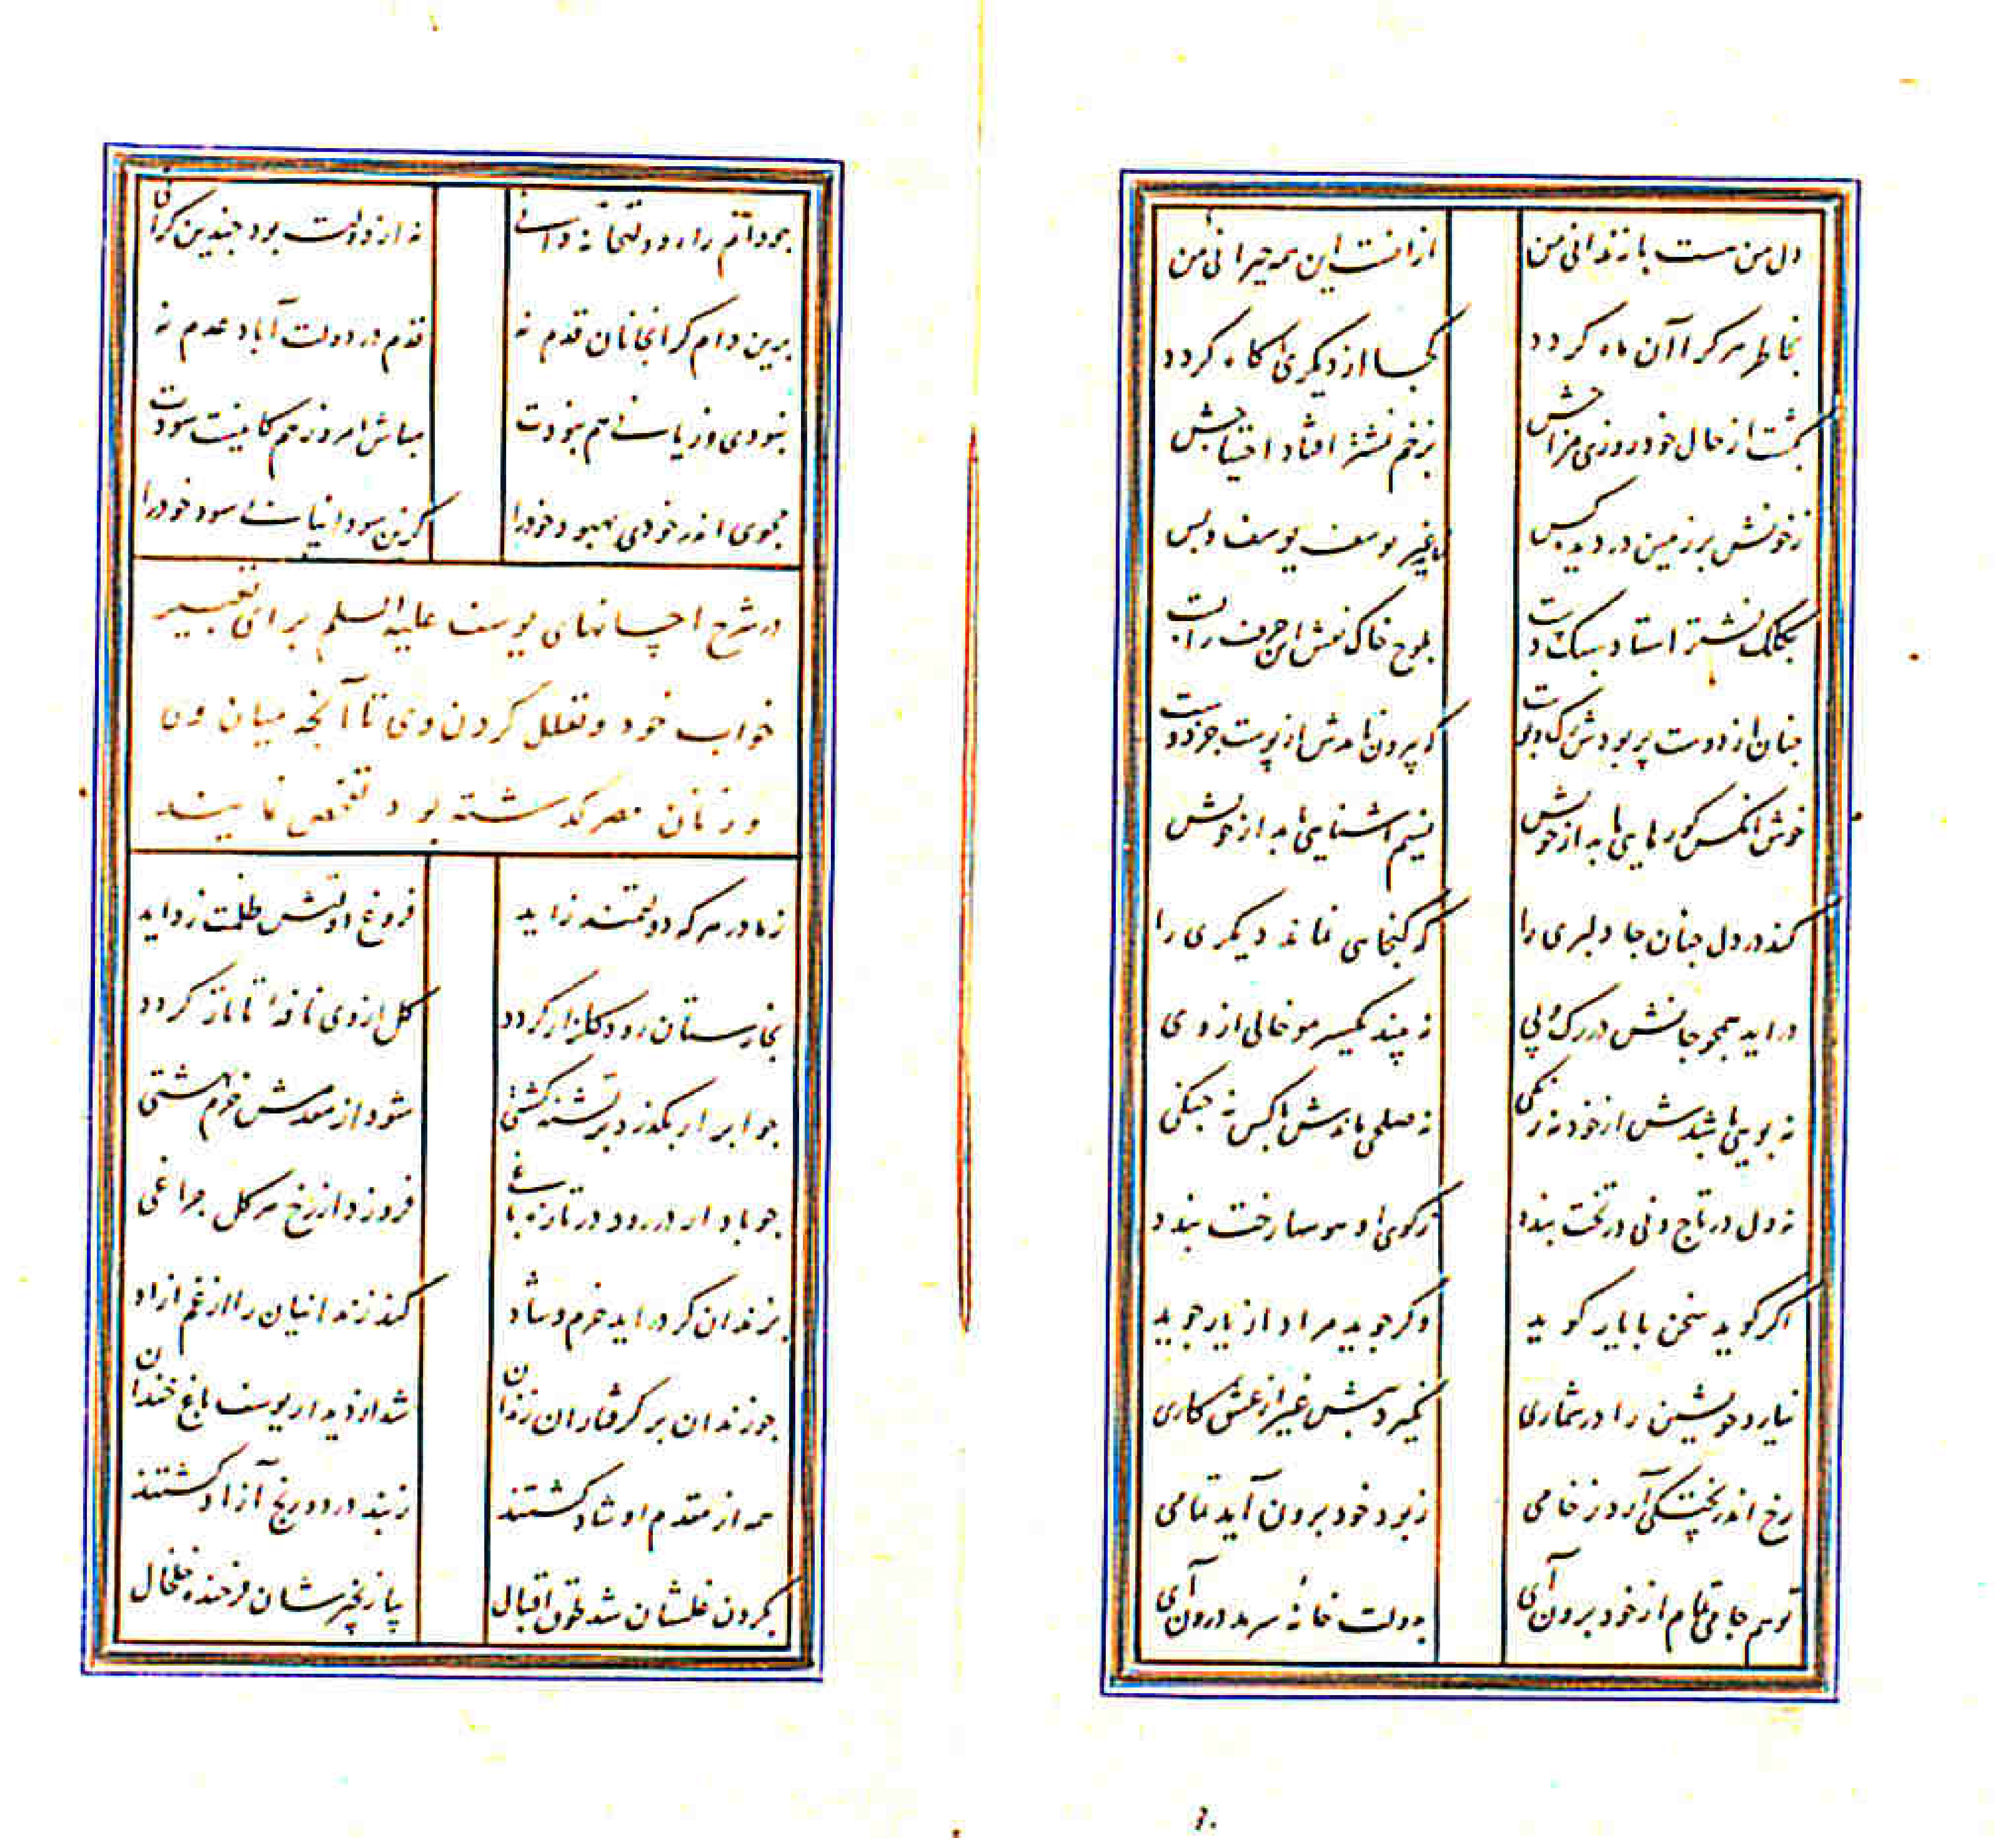 دل من هست با زندانی من
ازانست این همه حیرانی من
بخاطر هر کرا آن ماه کردد
کجا از دیکری اکاه کردد
بکشت از حال خود روزی مزاجش
بزخم نشتر افتاد احتیاجش
زخونش بر زمین در دیده کس
نیامد غیر یوسف یوسف و بس
بکلک نشتر استاد سبک دست
بلوح خاک نقش این حرف را بست
چنان از دوست پر بودش رک و پوست
که بیرون نامدش از پوست جز دوست
خوش انکس کو رهایی یابد از خویش
نسیم اشنایی یابد از خویش
کند در دل چنان جا دلبری را
که کنجایی نماند دیکری را
دراید همچو جانش در رک و پی
نه بیند یکسر مو خالی از وی
نه بویی باشدش از خود نه رنکی
نه صلحی باشدش با کس نه جنکی
نه دل در تاج و نی در تخت بندد
ز کوی او هوسها رخت بندد
اکر کوید سخن با یار کوید
وکر جوید مراد از یار جوید
نیارد خویشتن را در شماری
نکیرد پیش غیر از عشق کاری
رخ اندر پختکی آرد ز خامی
ز بود خود برون آید تمامی
تو هم جامی تمام از خود برون آی
بدولت خانه سرمد درون آی
چو دانم راه دولتخانه دانی
نه از دولت بود چندین کرانی
برین دام کرانجانان قدم نه
قدم در دولت آباد عدم نه
نبودی و زیانی هم نبودت
مباش امروز هم کانیست سودت
مجوی اندر خودی بهبود خود را
کزین سودا نیابی سود خود را
در شرح احسانهای یوسف علیه السلم برای تعبیر
خواب خود و تعلل کردن وی تا آنچه میان وی
و زنان مصر کذشته بود تفحص نمایند
ز مادر هر که دولتمند زاید
فروغ دولتش ظلمت زداید
بخارستان رود کلزار کردد
کل از وی نافه تاتار کردد
چو ابر ار بکذرد بر تشنه کشتی
شود از مقدمش خرم بهشتی
چو باد ار در رود در تازه باغی
فروزد از رخ هر کل چراغی
بزندان کر دراید خرم و شاد
کند زندانیان را از غم ازاد
چو زندان بر کرفتاران زندان
شد از دیدار یوسف باغ خندان
همه از مقدم او شاد کشتند
ز بند درد و رنج آزاد کشتند
بکردن غلشان شد طوق اقبال
بپا زنجیرشان فرخنده خلخال